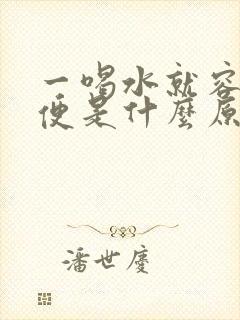 一喝水就容
便是什麼原
潘世慶